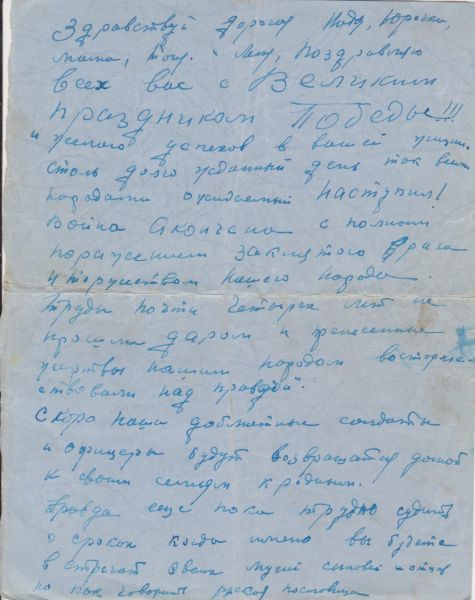 Здравствуй дорогая Надя, Юрочка,
мама, Тоня и Лиля, Поздравляю
всех вас с Великим
праздником Победы!!!
и желаю успехов в вашей жизни.
столь долгожданный день так всеми
народами ожидаемый наступил!
Война окончена с полным
поражением заклятого врага
и торжеством нашего народа.
Труды почти четырех лет не
прошли даром и принесенные
жертвы нашим народом восторже
ствовали над правдой.
Скоро наши доблестные солдаты
и офицеры будут возвращатся домой
к своим семьям к родным.
Правда еще пока трудно судить
о сроках когда имено вы будете
встречат своих мужей сыновей и отцов
но как говорит руская пословица